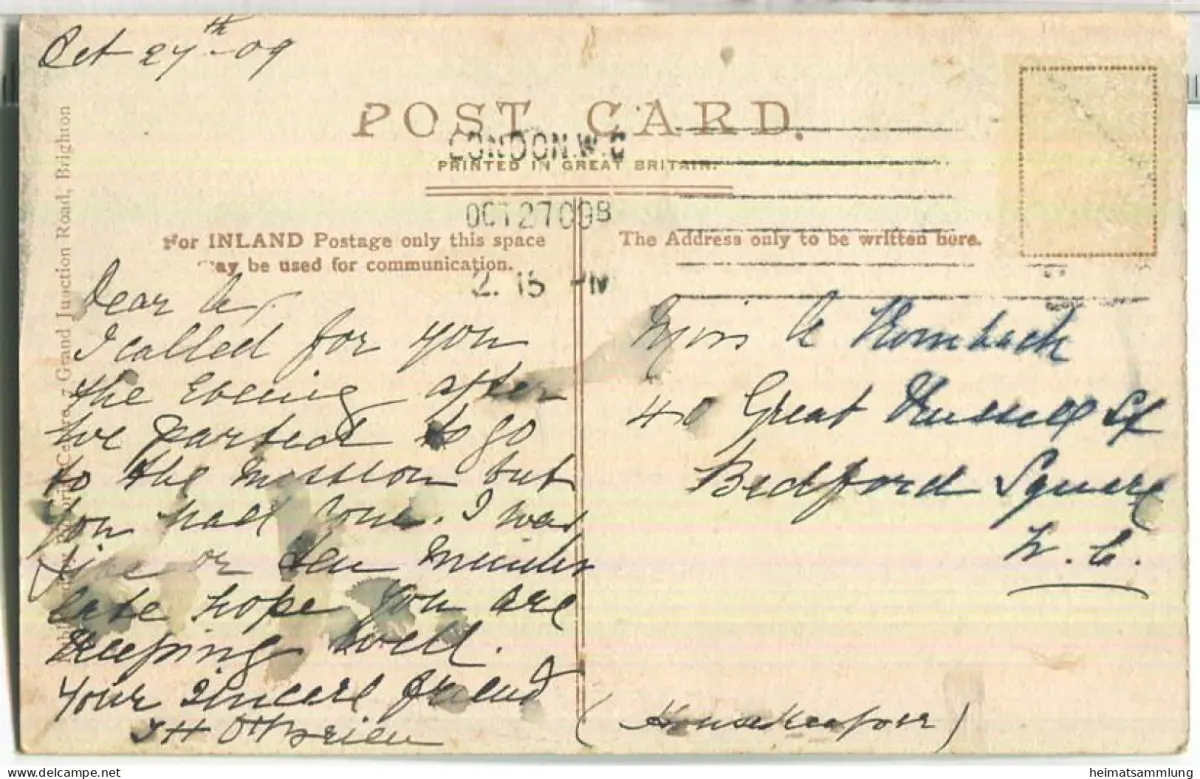 Oct 27th -09
POST CARD.
LONDON. W.C
PRINTED IN GREAT BRITAIN.
OCT 27 09 B
For INLAND Postage only this space
may be used for communication.
The Address only to be written here.
2. 15 PM
Grand Junction Road, Brighton
Dear A,
I called for you
the Evening after
we parted to go
to the mission but
you had gone. I was
five or ten minutes
late hope you are
Keeping well.
Your Sincere friend
O'Brien
Miss A Rombach
40 Great Russell St
Bedford Square
W. C.
(Housekeeper)
heimatsammlung
www.delcampe.net/user/heimatsammlung